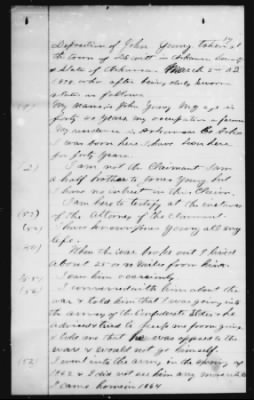 Deposition of John Young taken at
the town of De witt in Arkansas County
& State of Arkansas March 2nd AD
187 who after being duly sworn
states as follows
My name is John Young My age is
forty years my occupation a farmer
My residence is Arkansas Co Arks
I was born here I have been here
for forty years.
2) I am not the Claimant I am
a half brother to Jones Young but
I have no interest in this Claim.
I am here to testify at the instance
of the Attorney of the Claimant
I have known Jones Young all my
life.
When the war broke out I lived
about 25 or 30 miles from him.
I saw him occasionly
I conversed with him about the
war & told him that I was going into
the army of the Confederate States & he
advised & tried to keep me from going
& told me that he was opposed to the
war & would not go himself.
I went into the army in the spring of
1862 & I did not see him any more until
I came home in 1864